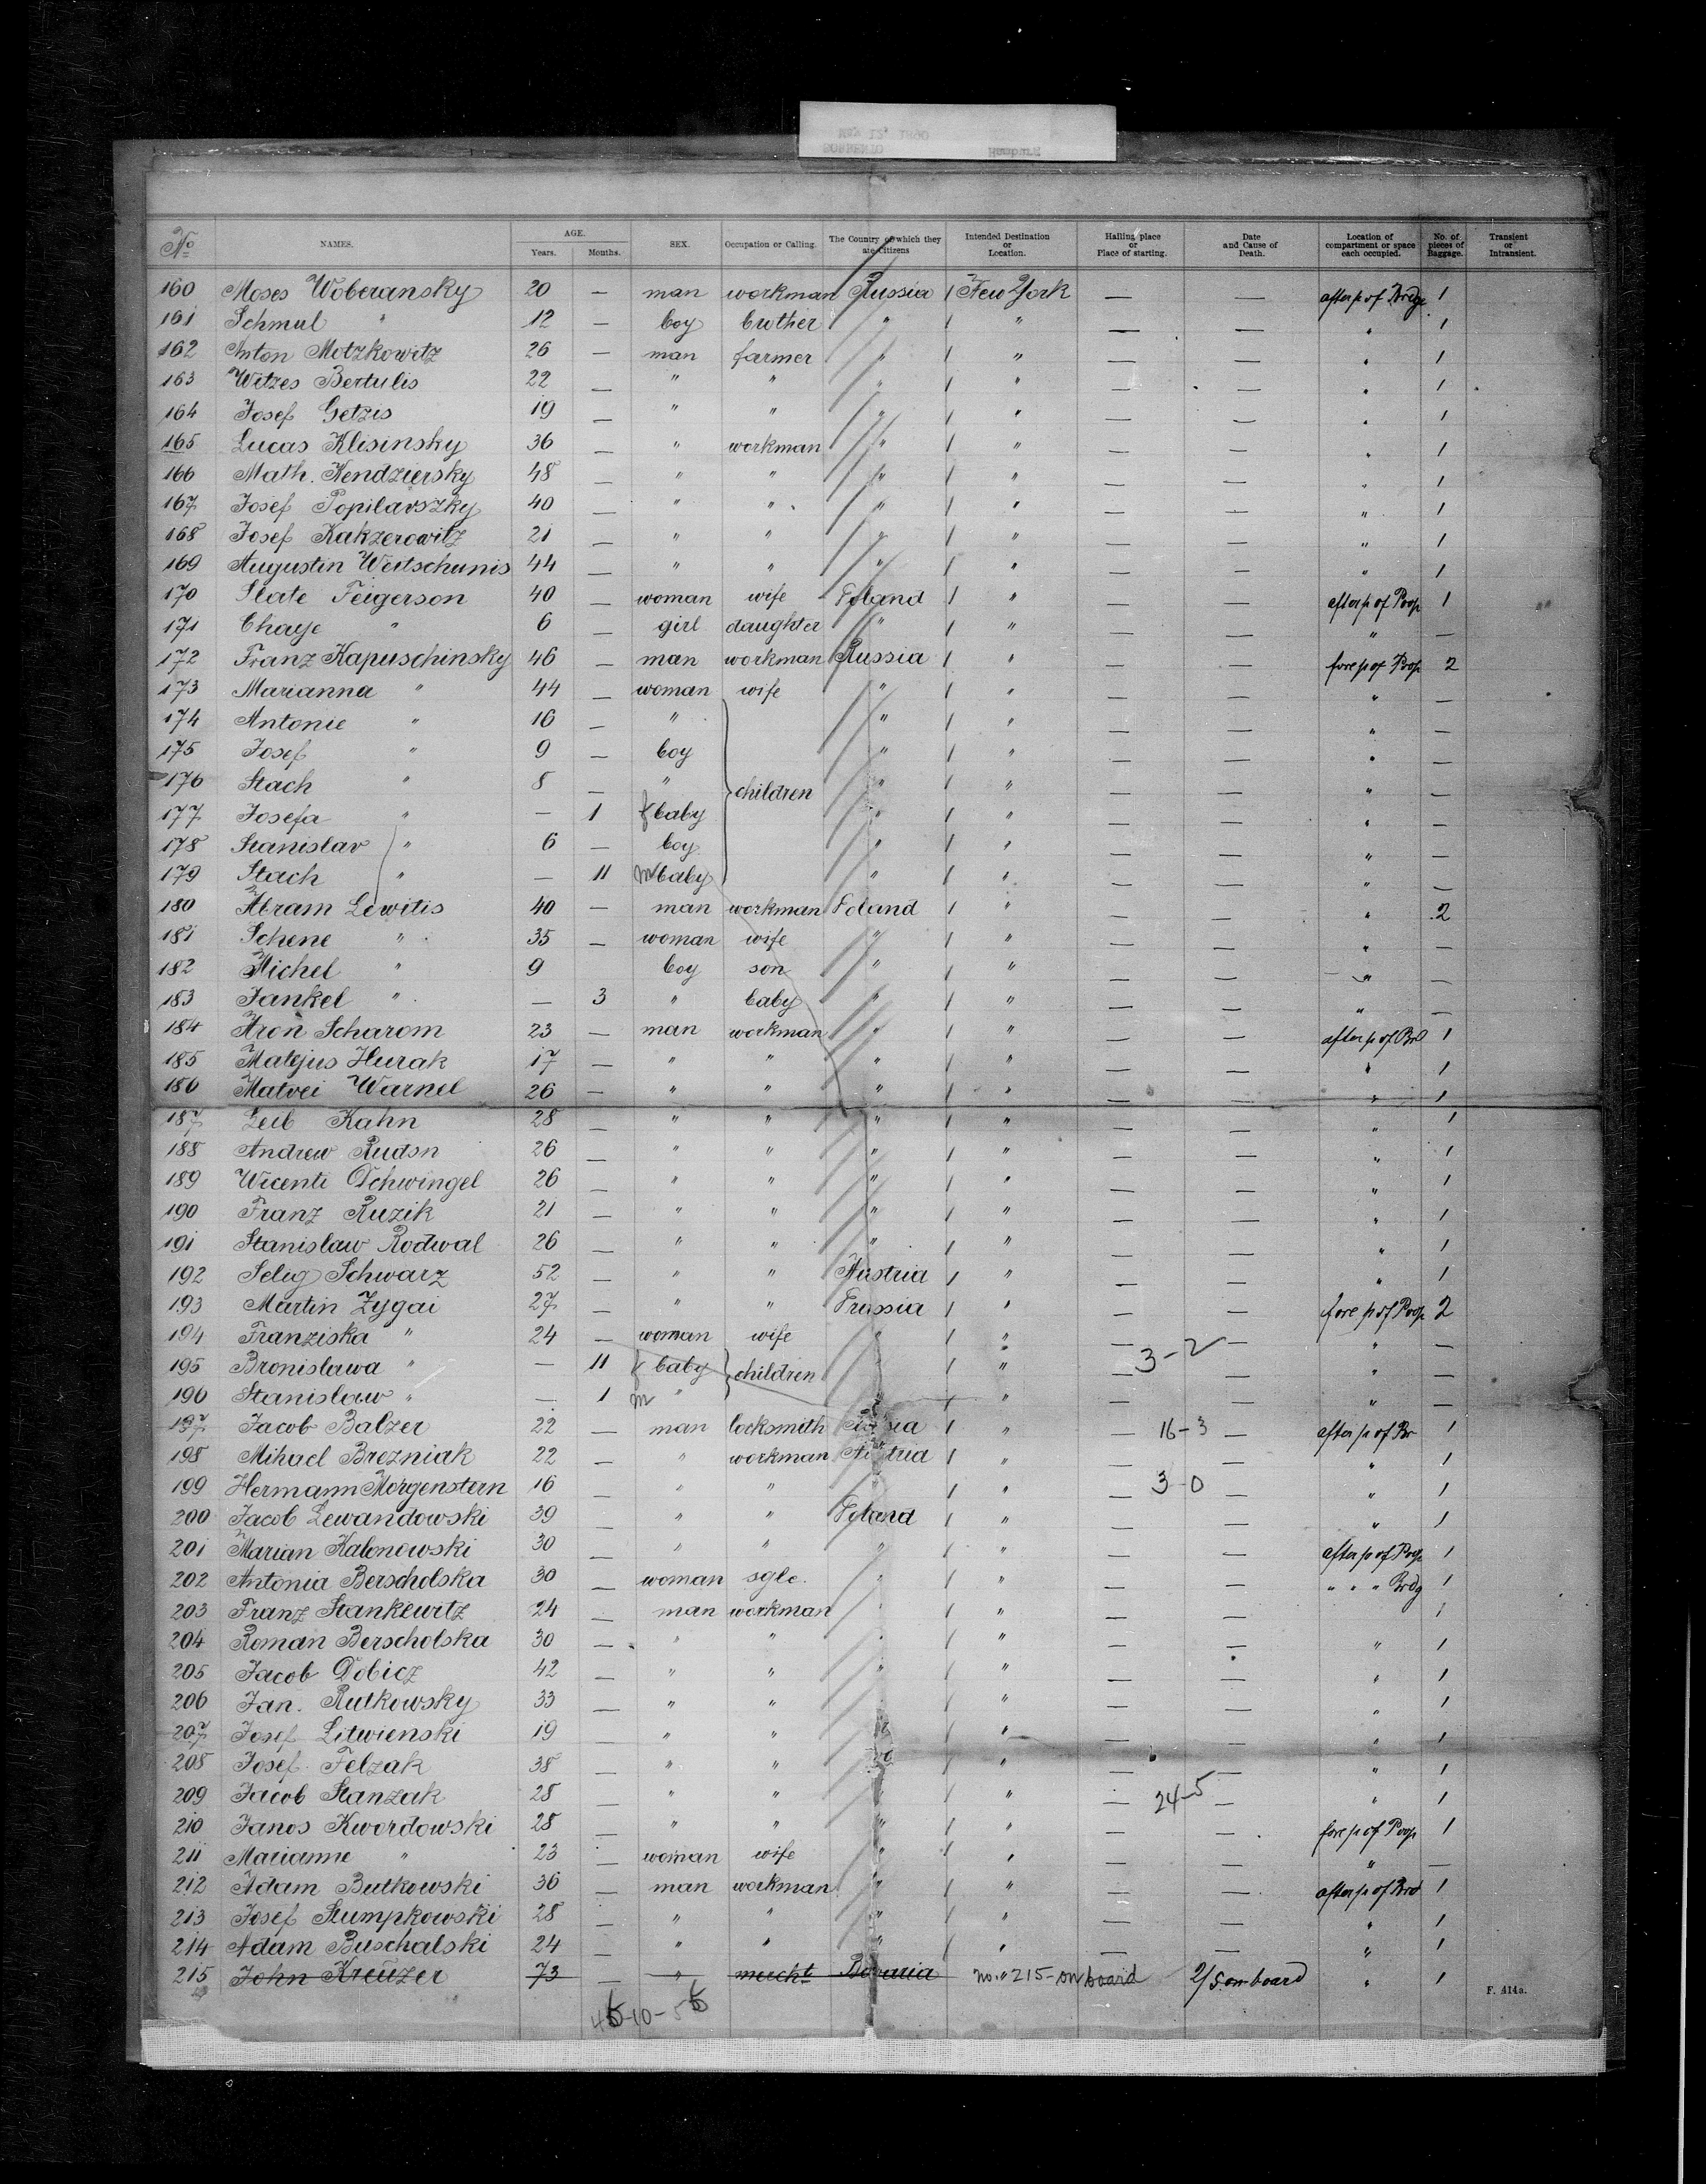 No. NAMES. AGE. Years. Months. SEX. Occupation or Calling. The Country of which they are Citizens Intended Destination or Location. Halling place or Place of starting. Date and Cause of Death. Location of compartment or space each occupied. No. of pieces of Baggage. Transient or Intransient.
160 Moses Woberansky 20 — man workman Russia 1 New York — — after p of Brdge 1
161 Schmul " 12 — boy brother " 1 " — — " 1
162 Anton Motzkowitz 26 — man farmer " 1 " — — " 1
163 Witzes Bertulis 22 — " " " 1 " — — " 1
164 Josef Getzis 19 — " " " 1 " — — " 1
165 Lucas Klisinsky 36 — " workman " 1 " — — " 1
166 Math. Kendziersky 48 — " " " 1 " — — " 1
167 Josef Popilavszky 40 — " " " 1 " — — " 1
168 Josef Kakzerowitz 21 — " " " 1 " — — " 1
169 Augustin Weitschunis 44 — " " " 1 " — — " 1
170 Slate Feigerson 40 — woman wife Poland 1 " — — after p of Poop 1
171 Chaye " 6 — girl daughter " 1 " — — " —
172 Franz Kapuschinsky 46 — man workman Russia 1 " — — fore p of Poop 2
173 Marianna " 44 — woman wife " 1 " — — " —
174 Antonie " 16 — " " 1 " — — " —
175 Josef " 9 — boy " 1 " — — " —
176 Stach " 8 — " children " 1 " — — " —
177 Josefa " — 1 f baby " 1 " — — " —
178 Stanislav " 6 — boy " 1 " — — " —
179 Stach " — 11 m baby " 1 " — — " —
180 Abram Lewitis 40 — man workman Poland 1 " — — " 2
181 Schene " 35 — woman wife " 1 " — — " —
182 Michel " 9 boy son " 1 " — — " —
183 Jankel " — 3 " baby " 1 " — — " —
184 Aron Scharom 23 — man workman " 1 " — — after p of Brd 1
185 Matejus Hurak 17 — " " " 1 " — — " 1
186 Matvei Warnel 26 — " " " 1 " — — " 1
187 Leib Kahn 28 — " " " 1 " — — " 1
188 Andrew Rudsn 26 — " " " 1 " — — " 1
189 Wicenti Dchwingel 26 — " " " 1 " — — " 1
190 Franz Ruzik 21 — " " " 1 " — — " 1
191 Stanislaw Rodwal 26 — " " " 1 " — — " 1
192 Selig Schwarz 52 — " " Austria 1 " — — " 1
193 Martin Zygai 27 — " " Prussia 1 " — — fore p of Poop 2
194 Franziska " 24 — woman wife " 1 " — — " —
195 Bronislawa " — 11 f baby children " 1 " — 3-2 — " —
196 Stanislaw " — 1 m " " 1 " — — " —
197 Jacob Balzer 22 — man locksmith 1 " — 16-3 — after p of Br 1
198 Mihael Brezniak 22 — " workman Austria 1 " — — " 1
199 Hermann Morgenstern 16 — " " " 1 " — 3-0 — " 1
200 Jacob Lewandowski 39 — " " Poland 1 " — — " 1
201 Marian Kalenowski 30 — " " " 1 " — — after p of Poop 1
202 Antonia Berscholska 30 — woman sgle. " 1 " — — " " " Brdg 1
203 Franz Stankewitz 24 — man workman " 1 " — — 1
204 Roman Berscholska 30 — " " " 1 " — — " 1
205 Jacob Dobicz 42 — " " " 1 " — — " 1
206 Jan. Rutkowsky 33 — " " " 1 " — — " 1
207 Josef Litwienski 19 — " " " 1 " — — " 1
208 Josef Felzak 38 — " " 1 " — — " 1
209 Jacob Stanzak 28 — " " 1 " — 24-5 — " 1
210 Janos Kwordowski 28 — " " " 1 " — — fore p of Poop 1
211 Marianne " 23 — woman wife " 1 " — — " —
212 Adam Butkowski 36 — man workman " 1 " — — after p of Brd 1
213 Josef Stumpkowski 28 — " " " 1 " — — " 1
214 Adam Buschalski 24 — " " " 1 " — — " 1
215 John Kreuzer 73 — " mercht Bavaria no. 215-on board 2/5 on board " 1
F. 414a.